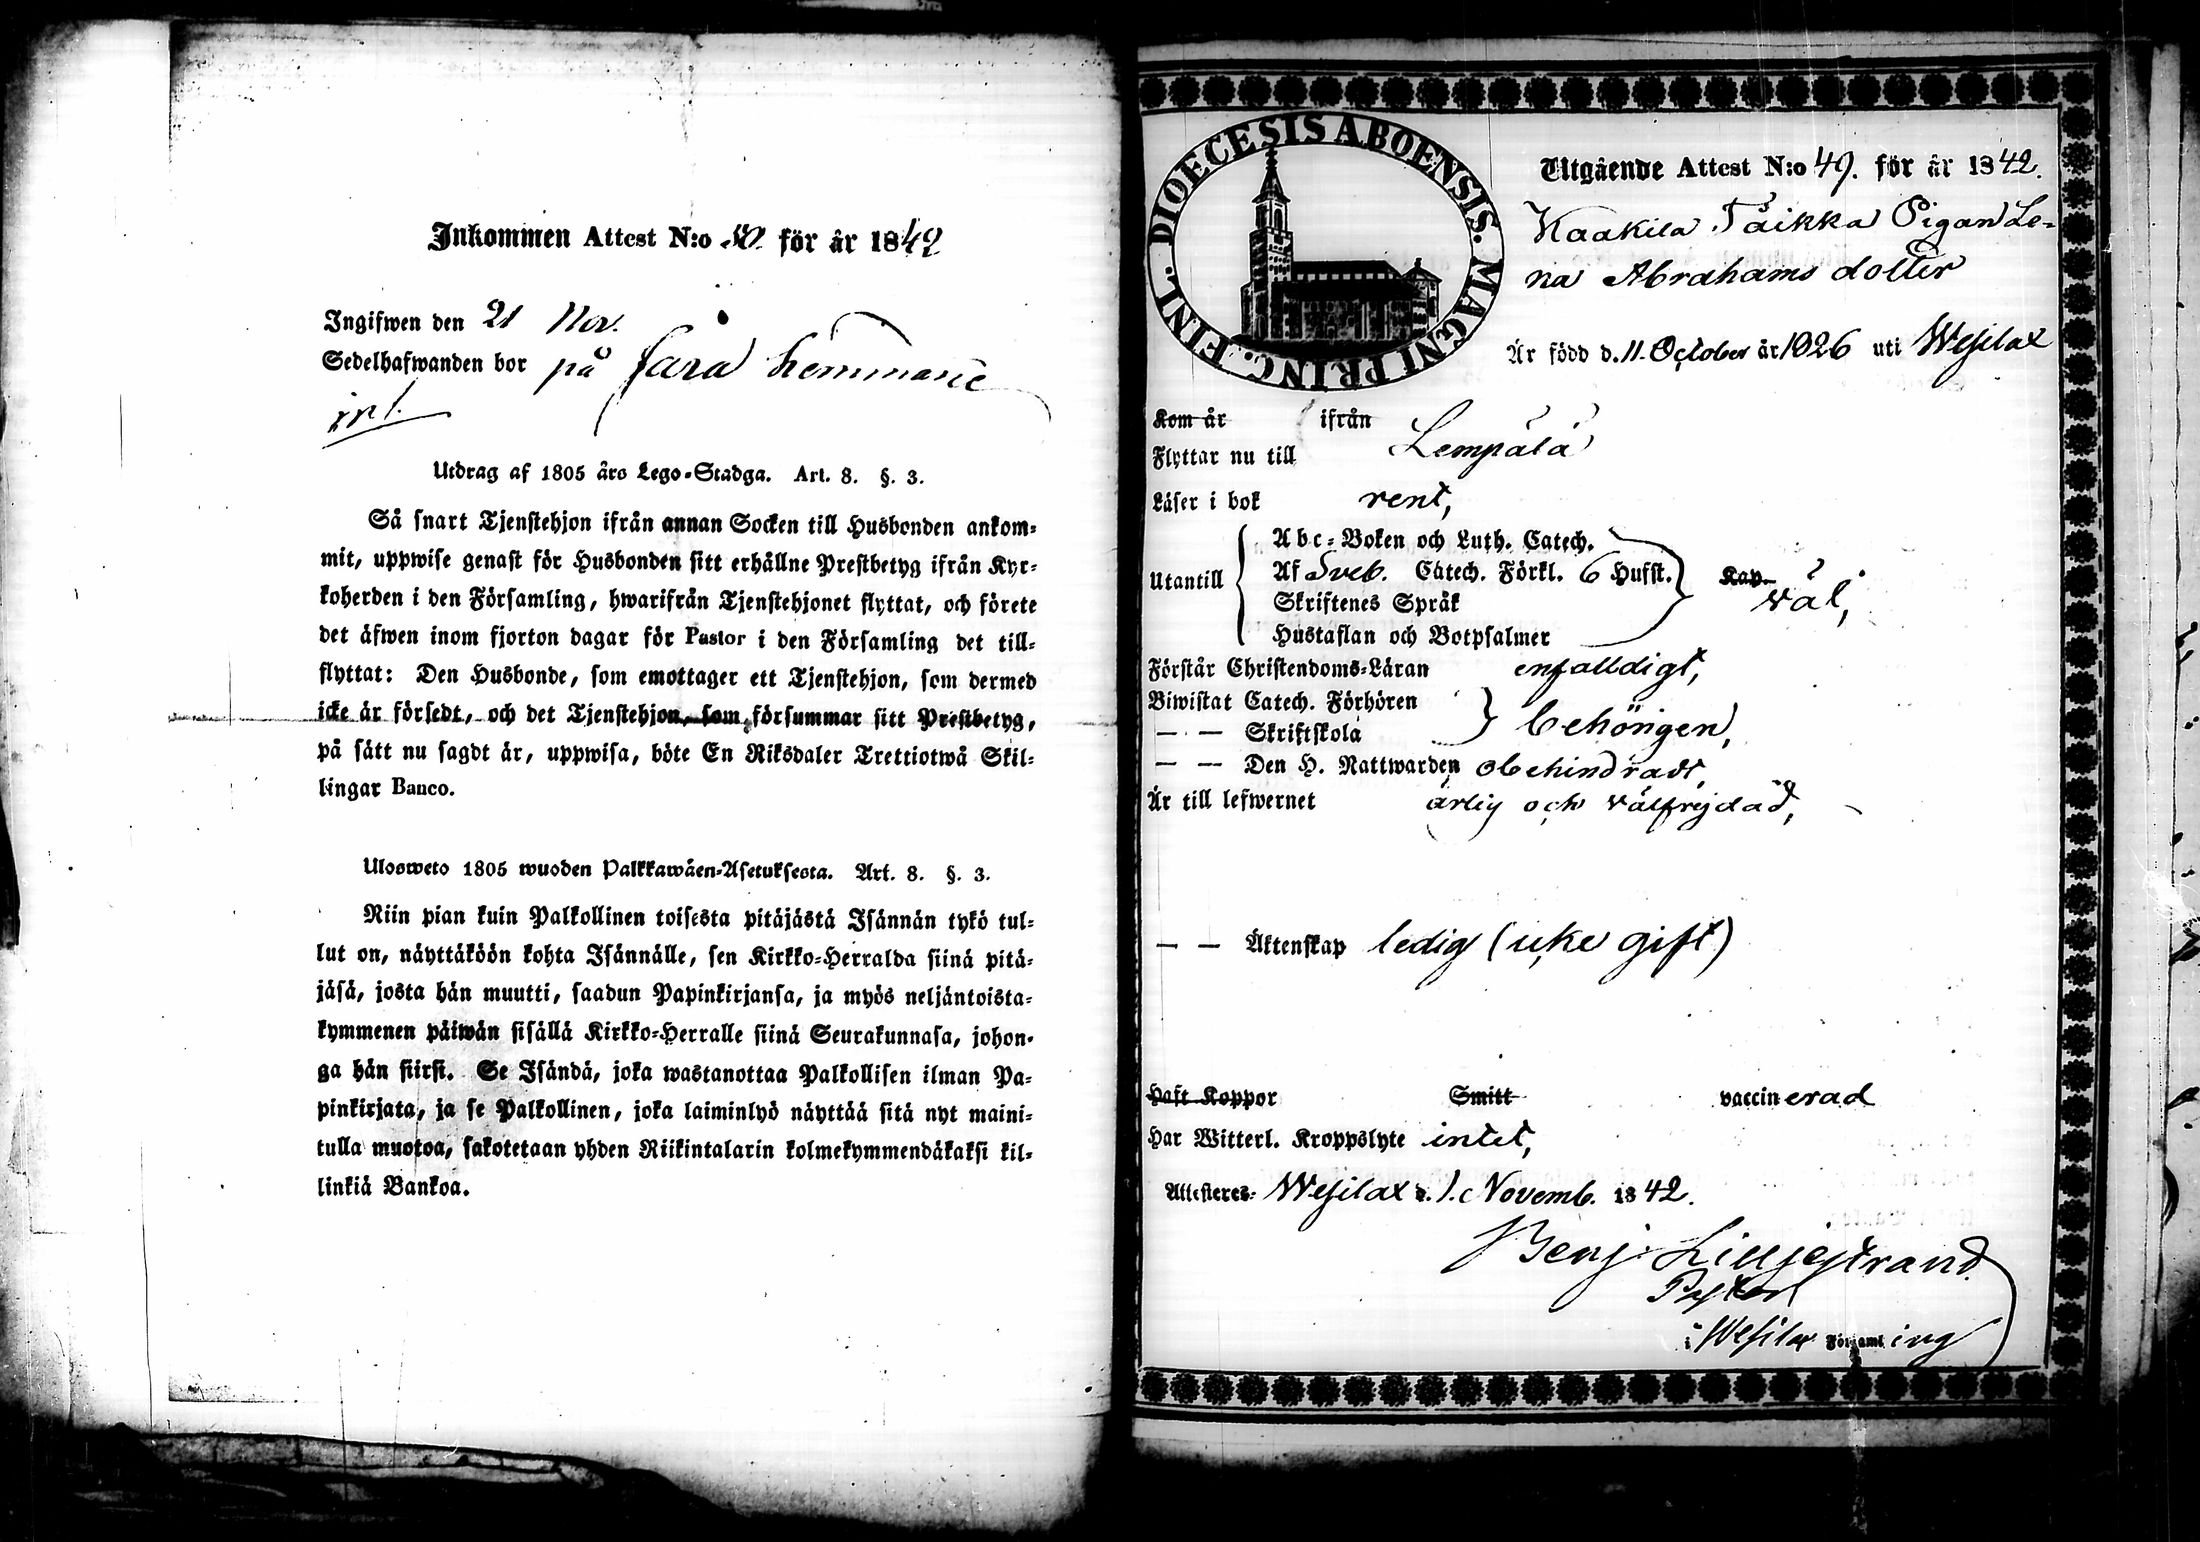 Inkommen Attest N:o 50. för år 1842
Ingifwen den 21 Nov.
Sedelhafwanden bor på hemmane
int.
Utdrag af 1805 års Lego-Stadga. Art. 8. §. 3.
Så snart Tjenstehjon ifrån annan Socken till Husbonden ankom-
mit, uppwise genast för Husbonden sitt erhållne Prestbetyg ifrån Kyr-
koherden i den Församling, hwarifrån Tjenstehjonet flyttat, och förete
det äfwen inom fjorton dagar för Pastor i den Församling det till-
flyttat: Den Husbonde, som emottager ett Tjenstehjon, som dermed
icke är försedt, och det Tjenstehjon, som försummar sitt Prestbetyg,
på sätt nu sagdt är, uppwisa, böte En Riksdaler Trettiotwå Skil-
lingar Banco.
Ulosweto 1805 wuoden Palkkawäen-Asetuksesta. Art. 8. §. 3.
Niin pian kuin Palkollinen toisesta pitäjästä Isännän tykö tul-
lut on, näyttäköön kohta Isännälle, sen Kirkko-Herralda siinä pitä-
jäsä, josta hän muutti, saadun Papinkirjansa, ja myös neljäntoista-
kymmenen päiwän sisällä Kirkko-Herralle siinä Seurakunnasa, johon-
ga hän siirsi. Se Isändä, joka wastanottaa Palkollisen ilman Pa-
pinkirjata, ja se Palkollinen, joka laiminlyö näyttää sitä nyt maini-
tulla muotoa, sakotetaan yhden Riikintalarin kolmekymmendäkaksi kil-
linkiä Bankoa.
DIOECESIS ABOENSIS. MAGNI PRINC. FINL.
Utgående Attest N:o 49. för år 1842.
Kaakila Taikka Pigan Le-
na Abrahams dotter
Är född d. 11. October år 1826 uti Wesilax
Kom år ifrån
Flyttar nu till Lempälä
Läser i bok rent,
Utantill
Abc-Boken och Luth. Catech.
Af Sveb. Catech. Förkl. 6 Hufst.
Skriftenes Språk
Hustaflan och Botpsalmer
Kap. väl,
Förstår Christendoms-Läran enfalldigt,
Biwistat Catech. Förhören
— — Skriftskola behörigen,
— — Den H. Nattwarden obehindradt,
Är till lefwernet ärlig och välfrejdad,
— — Äktenskap ledig (icke gift)
Haft Koppor Smitt vaccinerad
Har Witterl. Kroppslyte intet,
Attesteres: Wesilax d. 1. Novemb. 1842.
Benj. Lilljestrand
Pastor
i Wesilax Församling